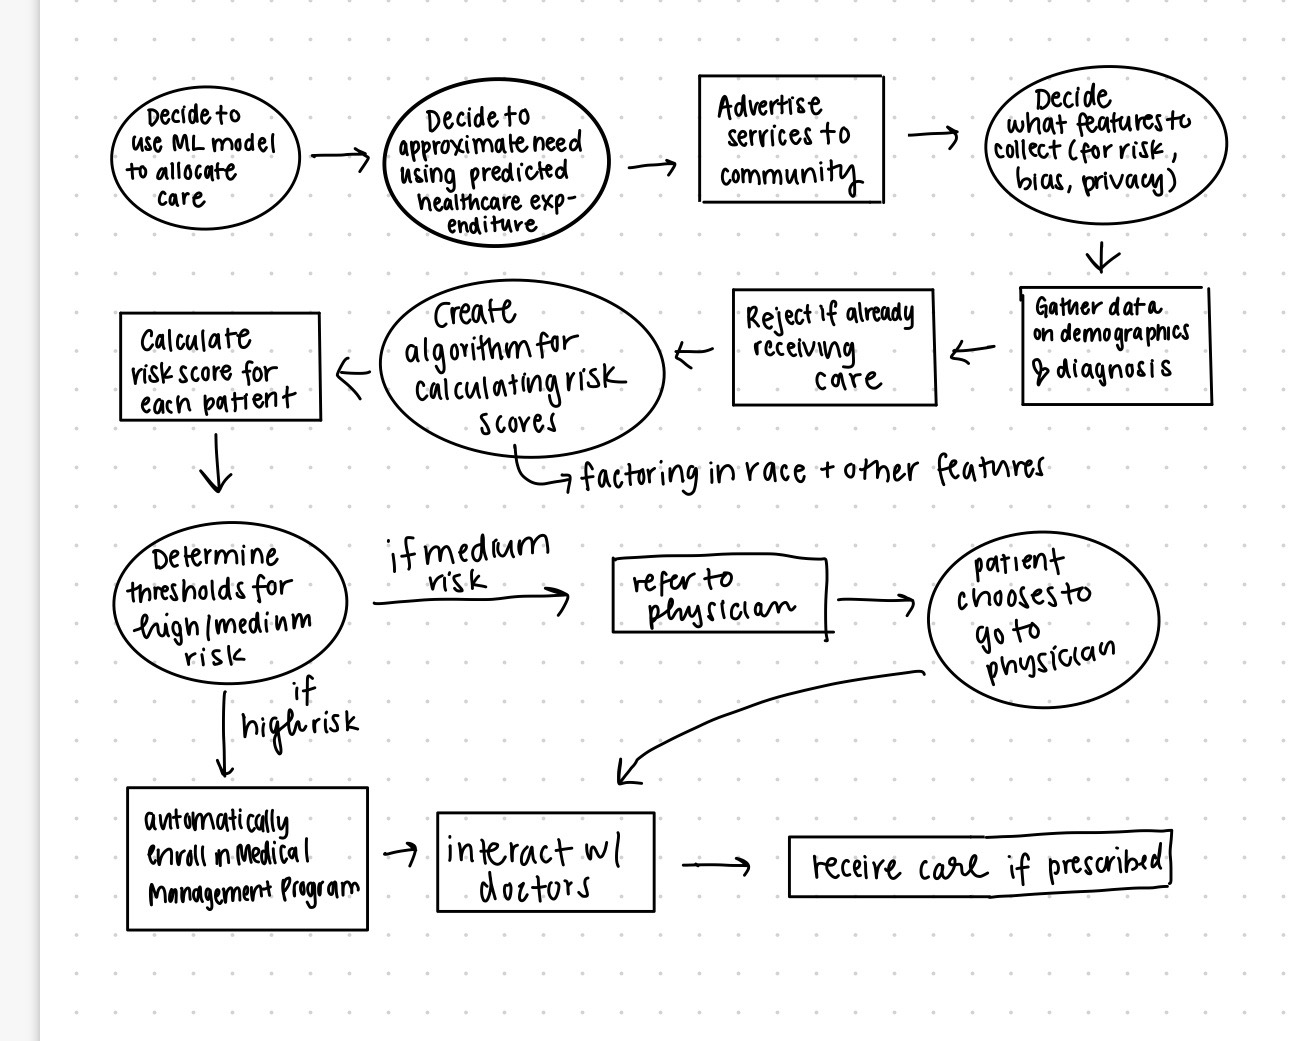 Decide to
use ML model
to allocate
care
Decide to
approximate need
using predicted
healthcare exp-
enditure
Advertise
services to
community
Decide
what features to
collect (for risk,
bias, privacy)
Gather data
on demographics
& diagnosis
Reject if already
receiving
care
Create
algorithm for
calculating risk
scores
factoring in race + other features
Calculate
risk score for
each patient
Determine
thresholds for
high/medium
risk
if medium
risk
refer to
physician
patient
chooses to
go to
physician
if
high risk
automatically
enroll in Medical
Management Program
interact w/
doctors
receive care if prescribed